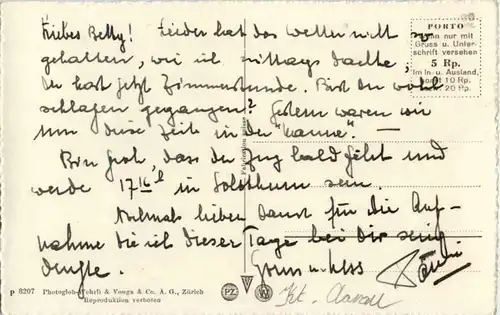 Liebes Betty! Leider hat das Wetter nicht so
gehalten, wie ich mittags dachte,
Du hast jetzt Zimmerstunde. Bist Du wohl
schlafen gegangen? Gestern waren wir
um diese Zeit in der "Kanne". —
Bin froh, dass der Zug bald fährt und
werde 17 16 h in Solothurn sein.
Nochmals lieben Dank für die Auf-
nahme die ich dieser Tage bei Dir sein
durfte.
Gruss u. Kuss
PORTO
wenn nur mit
Gruss u. Unter-
schrift versehen
5 Rp.
im In- u. Ausland,
sonst 10 Rp.
20 Rp.
p 8207 Photoglob-Wehrli & Vouga & Co. A. G., Zürich
Reproduktion verboten
PZ W
Kt.